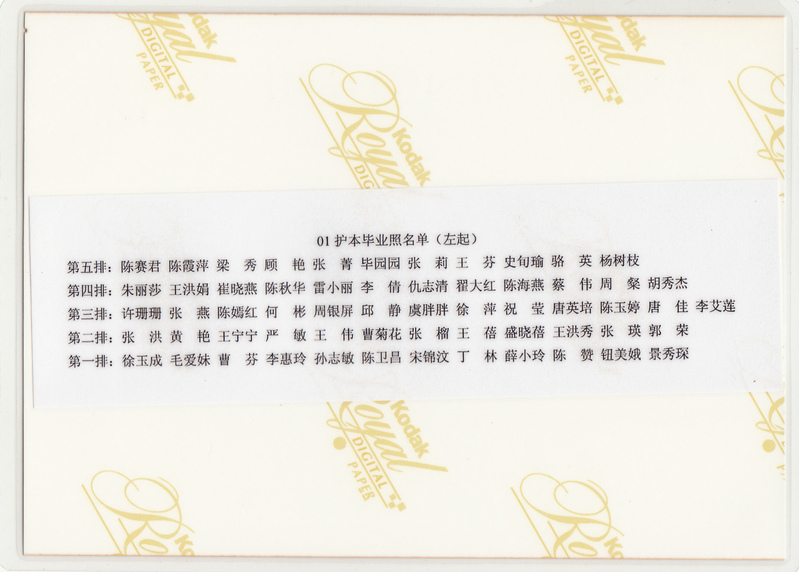 Kodak
Royal
DIGITAL
PAPER
Kodak
Royal
DIGITAL
PAPER
Kodak
Royal
DIGITAL
01护本毕业照名单（左起）
第五排：陈赛君 陈霞萍 梁　秀 顾　艳 张　菁 毕园园 张　莉 王　芬 史旬瑜 骆　英 杨树枝
第四排：朱丽莎 王洪娟 崔晓燕 陈秋华 雷小丽 李　倩 仇志清 翟大红 陈海燕 蔡　伟 周　粲 胡秀杰
第三排：许珊珊 张　燕 陈嫣红 何　彬 周银屏 邱　静 虞胖胖 徐　萍 祝　莹 唐英培 陈玉婷 唐　佳 李艾莲
第二排：张　洪 黄　艳 王宁宁 严　敏 王　伟 曹菊花 张　榴 王　蓓 盛晓蓓 王洪秀 张　瑛 郭　荣
第一排：徐玉成 毛爱妹 曹　芬 李惠玲 孙志敏 陈卫昌 宋锦汶 丁　林 薛小玲 陈　赞 钮美娥 景秀琛
Kodak
Royal
DIGITAL
PAPER
Royal
Royal